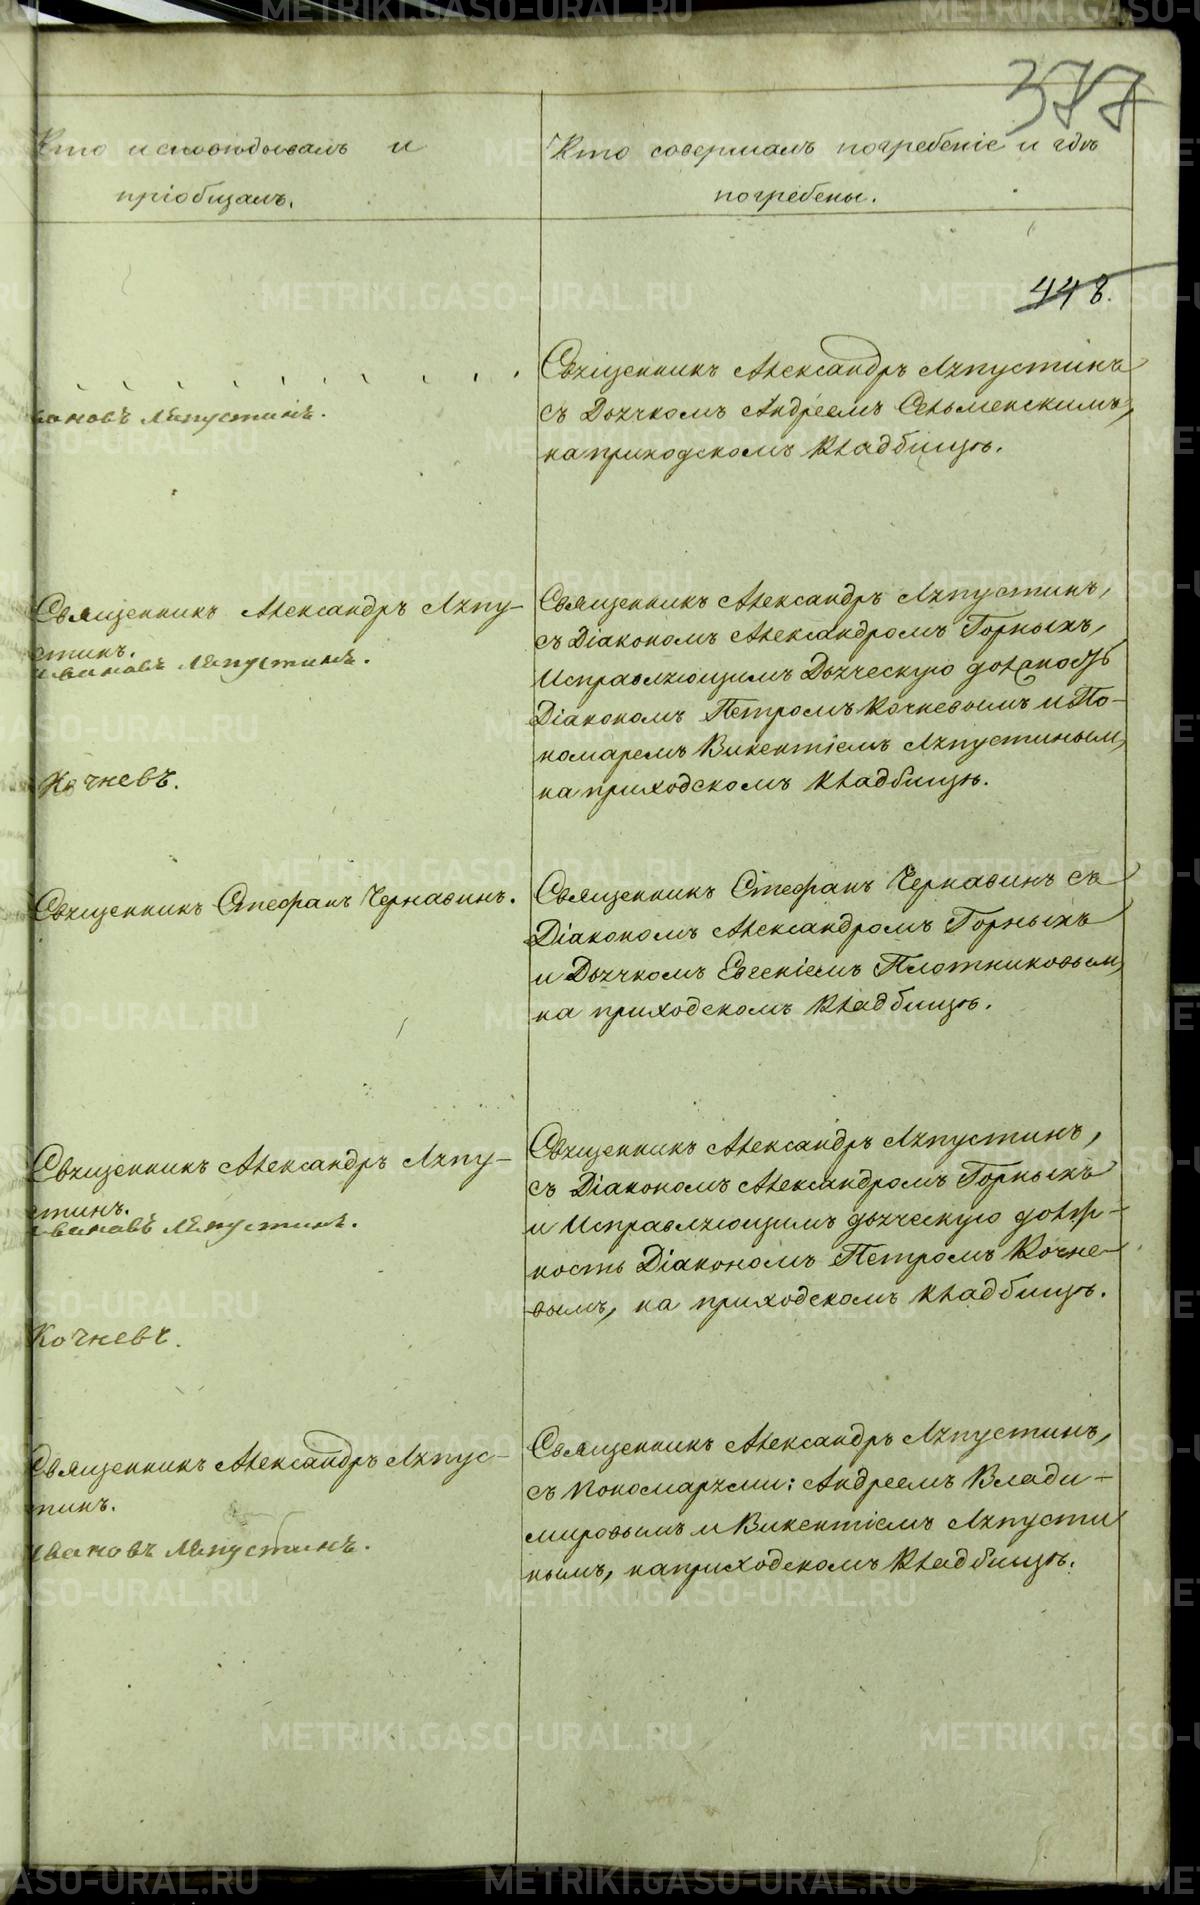 377
Кто исповѣдывалъ и
пріобщалъ.
Кто совершалъ погребеніе и гдѣ
погребены.
448.
Священникъ Александръ Ляпустинъ
съ Дьячкомъ Андреемъ Сельменскимъ,
на приходскомъ кладбищѣ.
вановъ Ляпустинъ.
Священникъ Александръ Ляпу-
стинъ.
ивановъ Ляпустинъ.
Кочневъ.
Священникъ Александръ Ляпустинъ,
съ Діакономъ Александромъ Горныхъ,
Исправляющимъ Дьяческую должность
Діакономъ Петромъ Кочневымъ и По-
номаремъ Викентіемъ Ляпустинымъ,
на приходскомъ кладбищѣ.
Священникъ Стефанъ Чернавинъ.
Священникъ Стефанъ Чернавинъ съ
Діакономъ Александромъ Горныхъ
и Дьячкомъ Евгеніемъ Плотниковымъ,
на приходскомъ кладбищѣ.
Священникъ Александръ Ляпу-
стинъ.
ивановъ Ляпустинъ.
Кочневъ.
Священникъ Александръ Ляпустинъ,
съ Діакономъ Александромъ Горныхъ
и Исправляющимъ дьяческую долж-
ность Діакономъ Петромъ Кочне-
вымъ, на приходскомъ кладбищѣ.
Священникъ Александръ Ляпус-
тинъ.
Ивановъ Ляпустинъ.
Священникъ Александръ Ляпустинъ,
съ Пономарями: Андреемъ Влади-
мировымъ и Викентіемъ Ляпусти
нымъ, на приходскомъ кладбищѣ.
METRIKI.GASO-URAL.RU